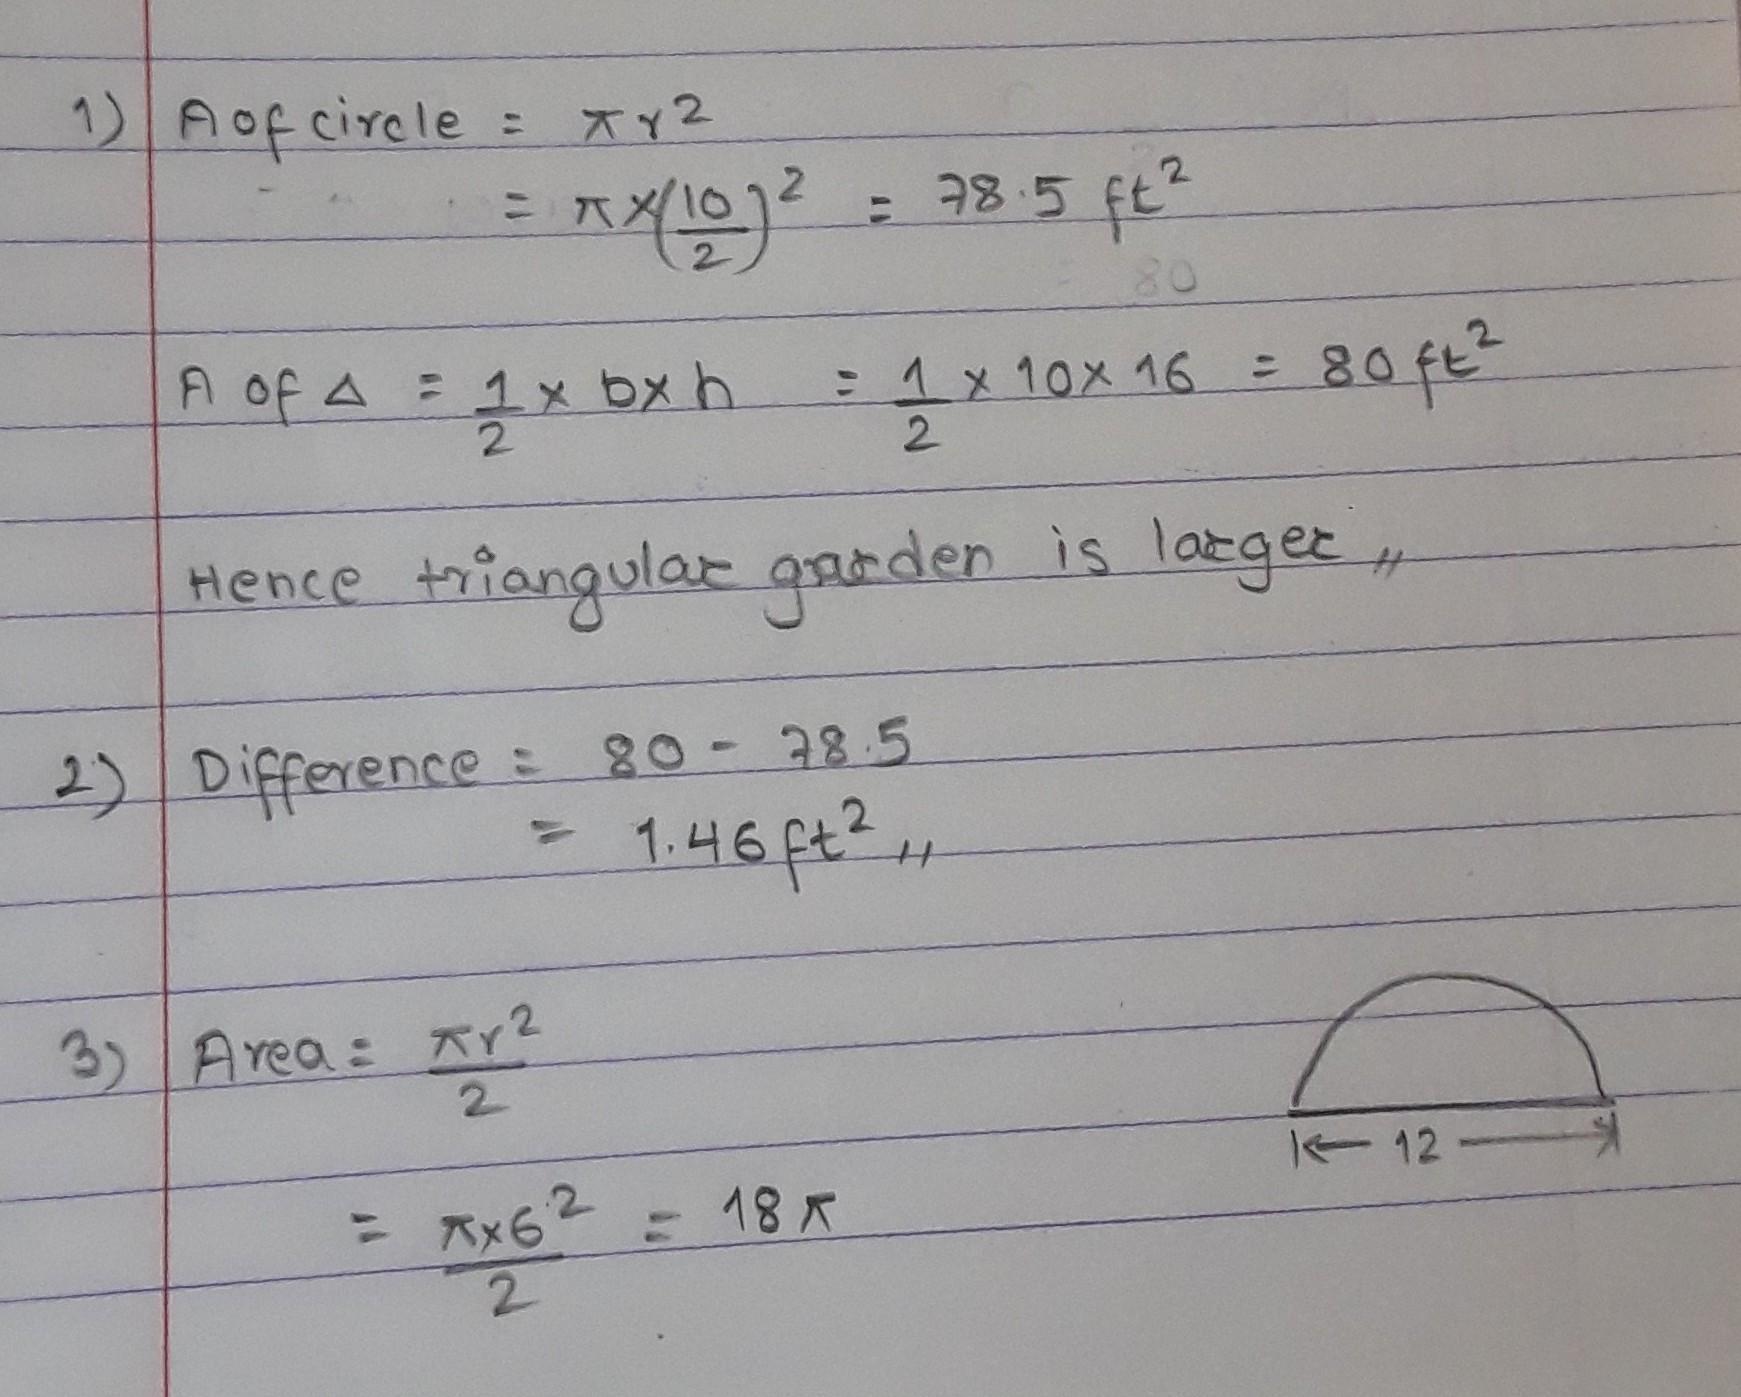 1) A of circle = πr2
= π×(10/2)² = 78.5 ft²
80
A of △ = 1/2 × b×h = 1/2 × 10×16 = 80 ft²
Hence triangular garden is larger,,
2) Difference = 80 - 78.5
= 1.46 ft²,,
3) Area = πr²/2
12
= π×6²/2 = 18π